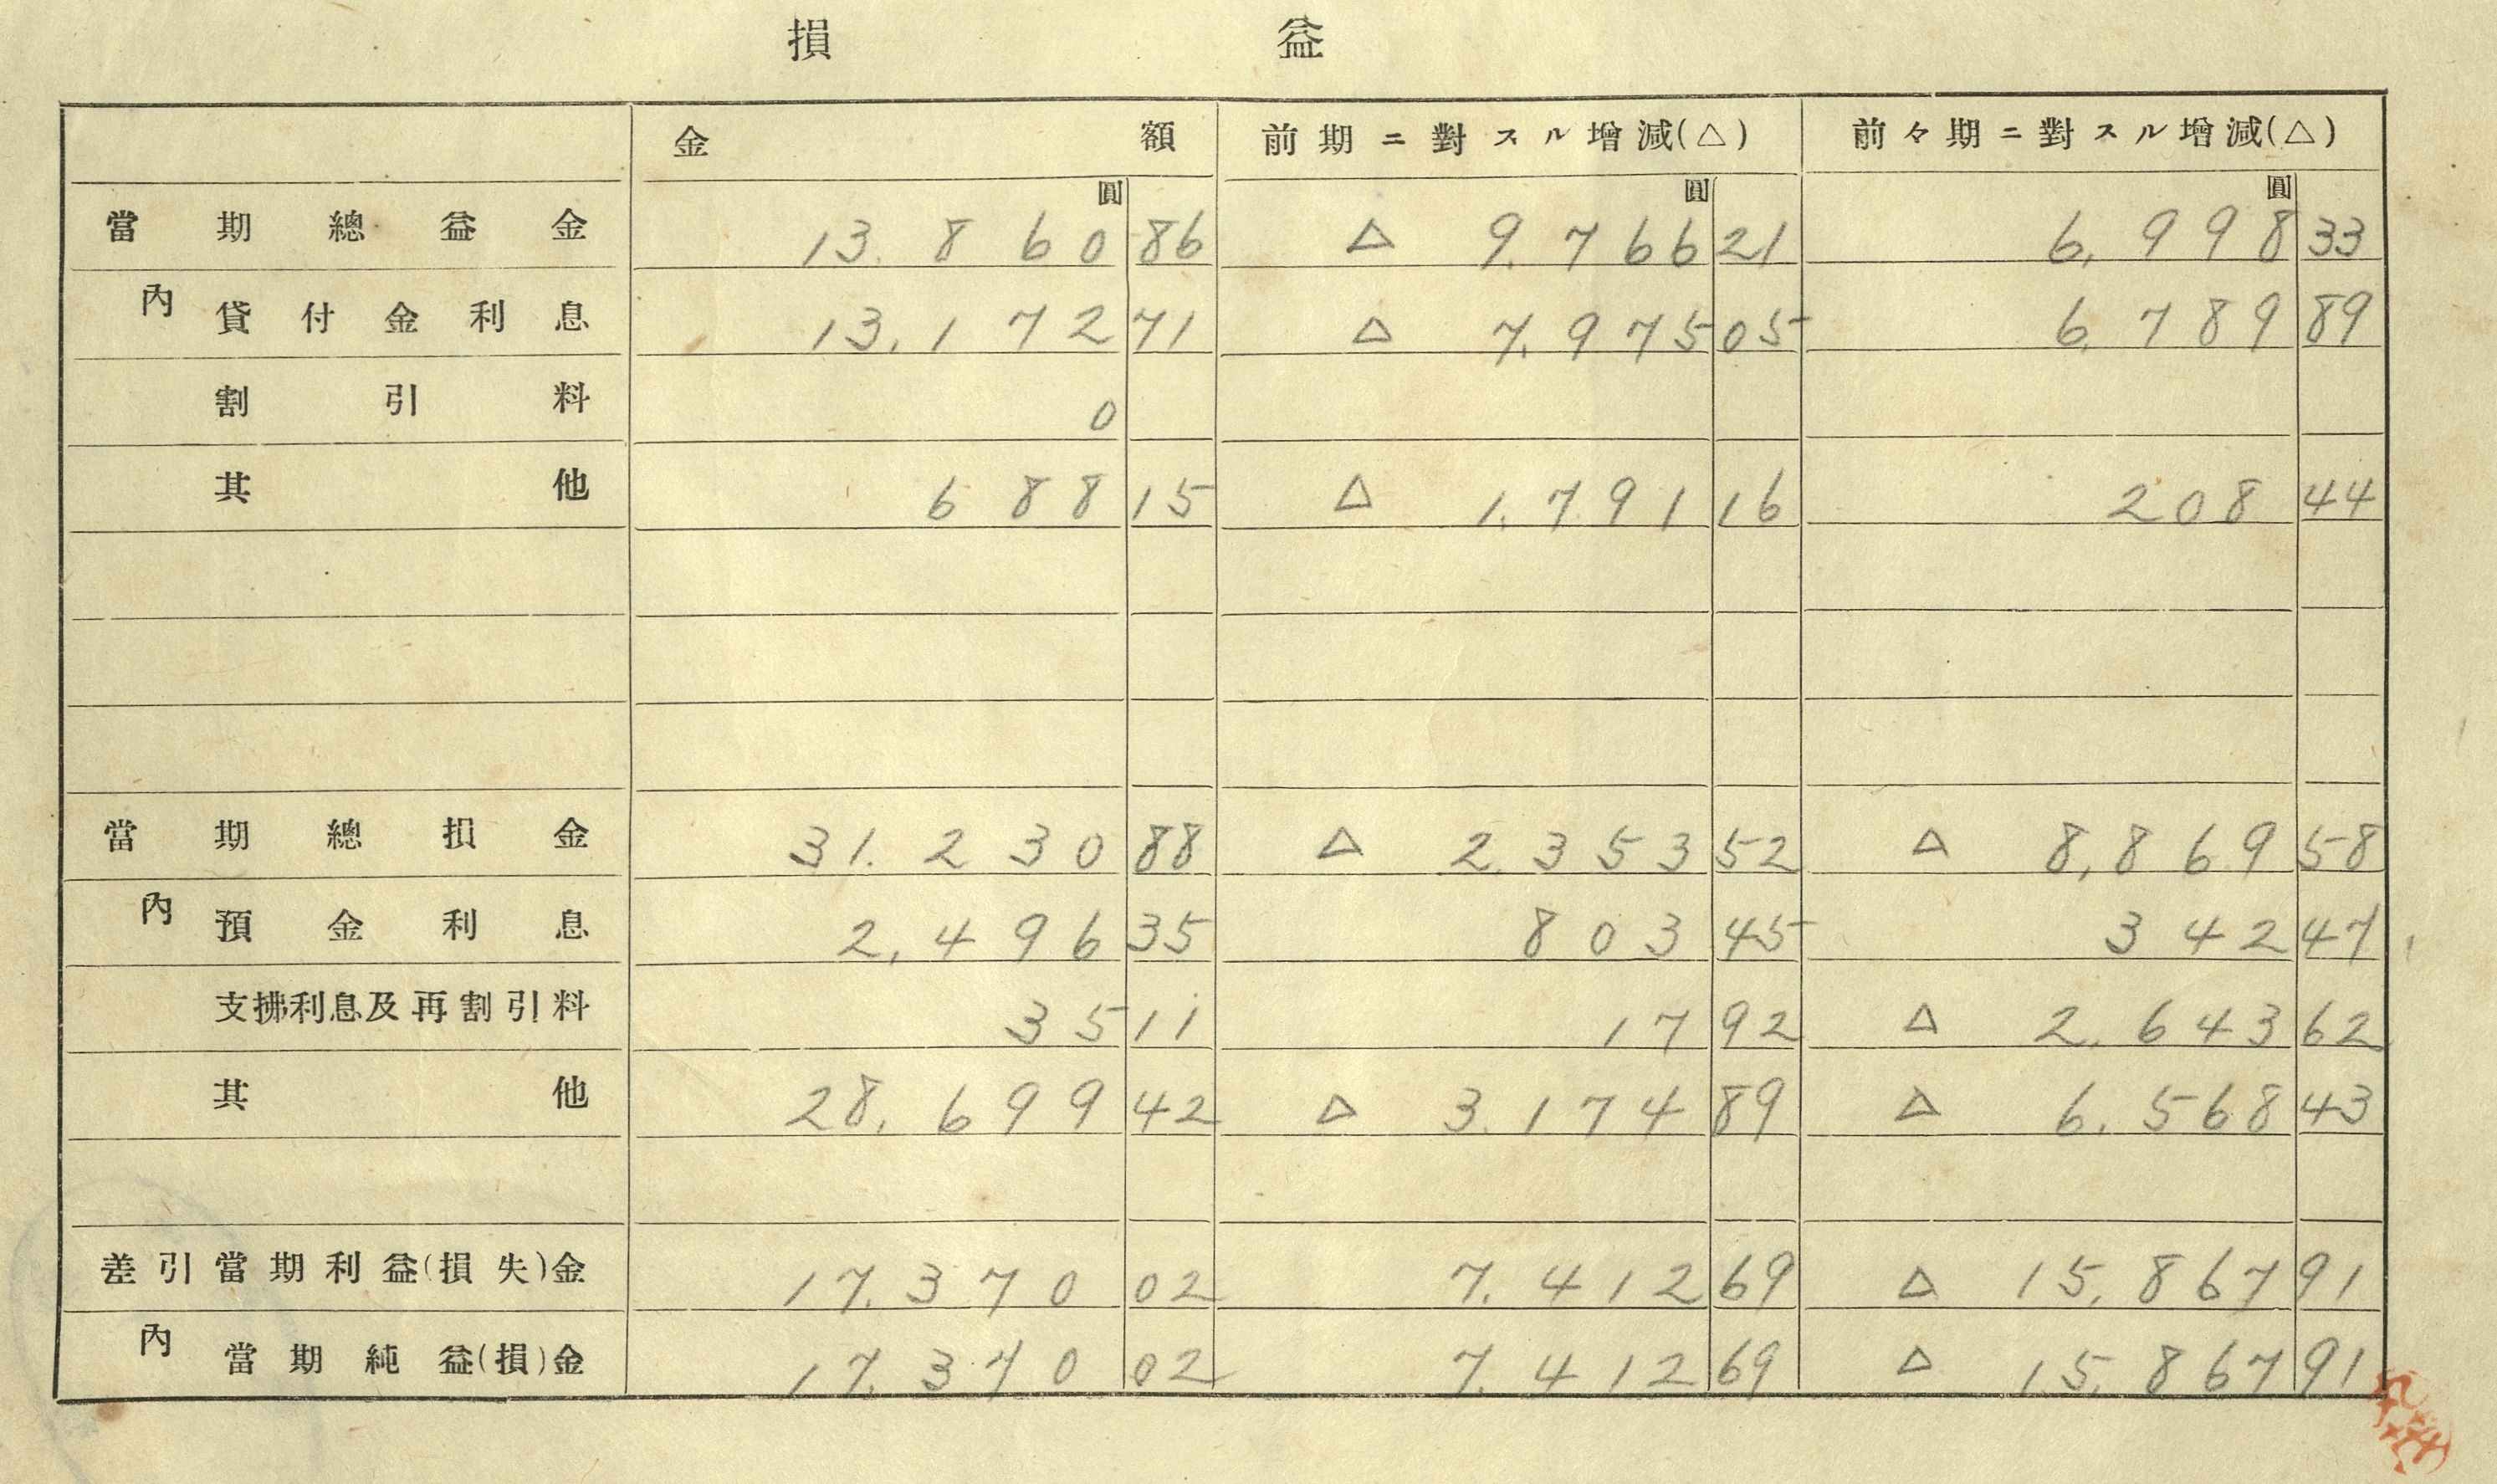 損益
金額 前期ニ對スル增減(△) 前々期ニ對スル增減(△)
圓 圓 圓
當期總益金 13.860 86 △ 9.766 21 6,998 33
內 貸付金利息 13,172 71 △ 7.975 05 6,789 89
割引料 0
其他 688 15 △ 1.791 16 208 44
當期總損金 31.230 88 △ 2.353 52 △ 8,869 58
內 預金利息 2,496 35 803 45 342 47
支拂利息及再割引料 35 11 17 92 △ 2.643 62
其他 28,699 42 △ 3.174 89 △ 6.568 43
差引當期利益(損失)金 17.370 02 7.412 69 △ 15,867 91
內 當期純益(損)金 17.370 02 7.412 69 △ 15,867 91